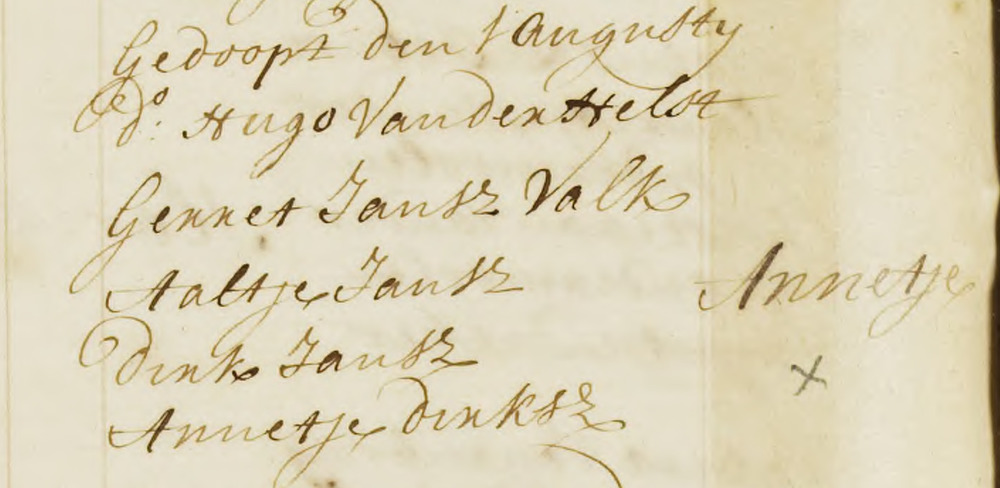 Gedoopt den 1 Augusty
Do. Hugo Van der Helst
Gerret Jansz Valk
Aaltje Jansz
Annetje
Dirk Jansz
Annetje Dirksz